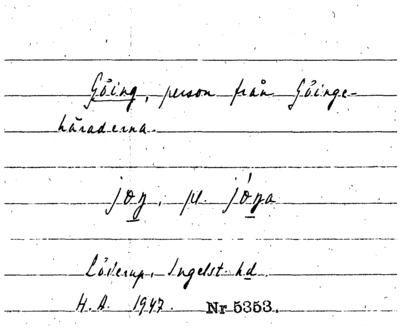 Göing, person från Göinge-
häraderna.
jøŋ, pl. jøŋa
Löderup, Ingelst. hd.
H. A. 1947. Nr 5353.